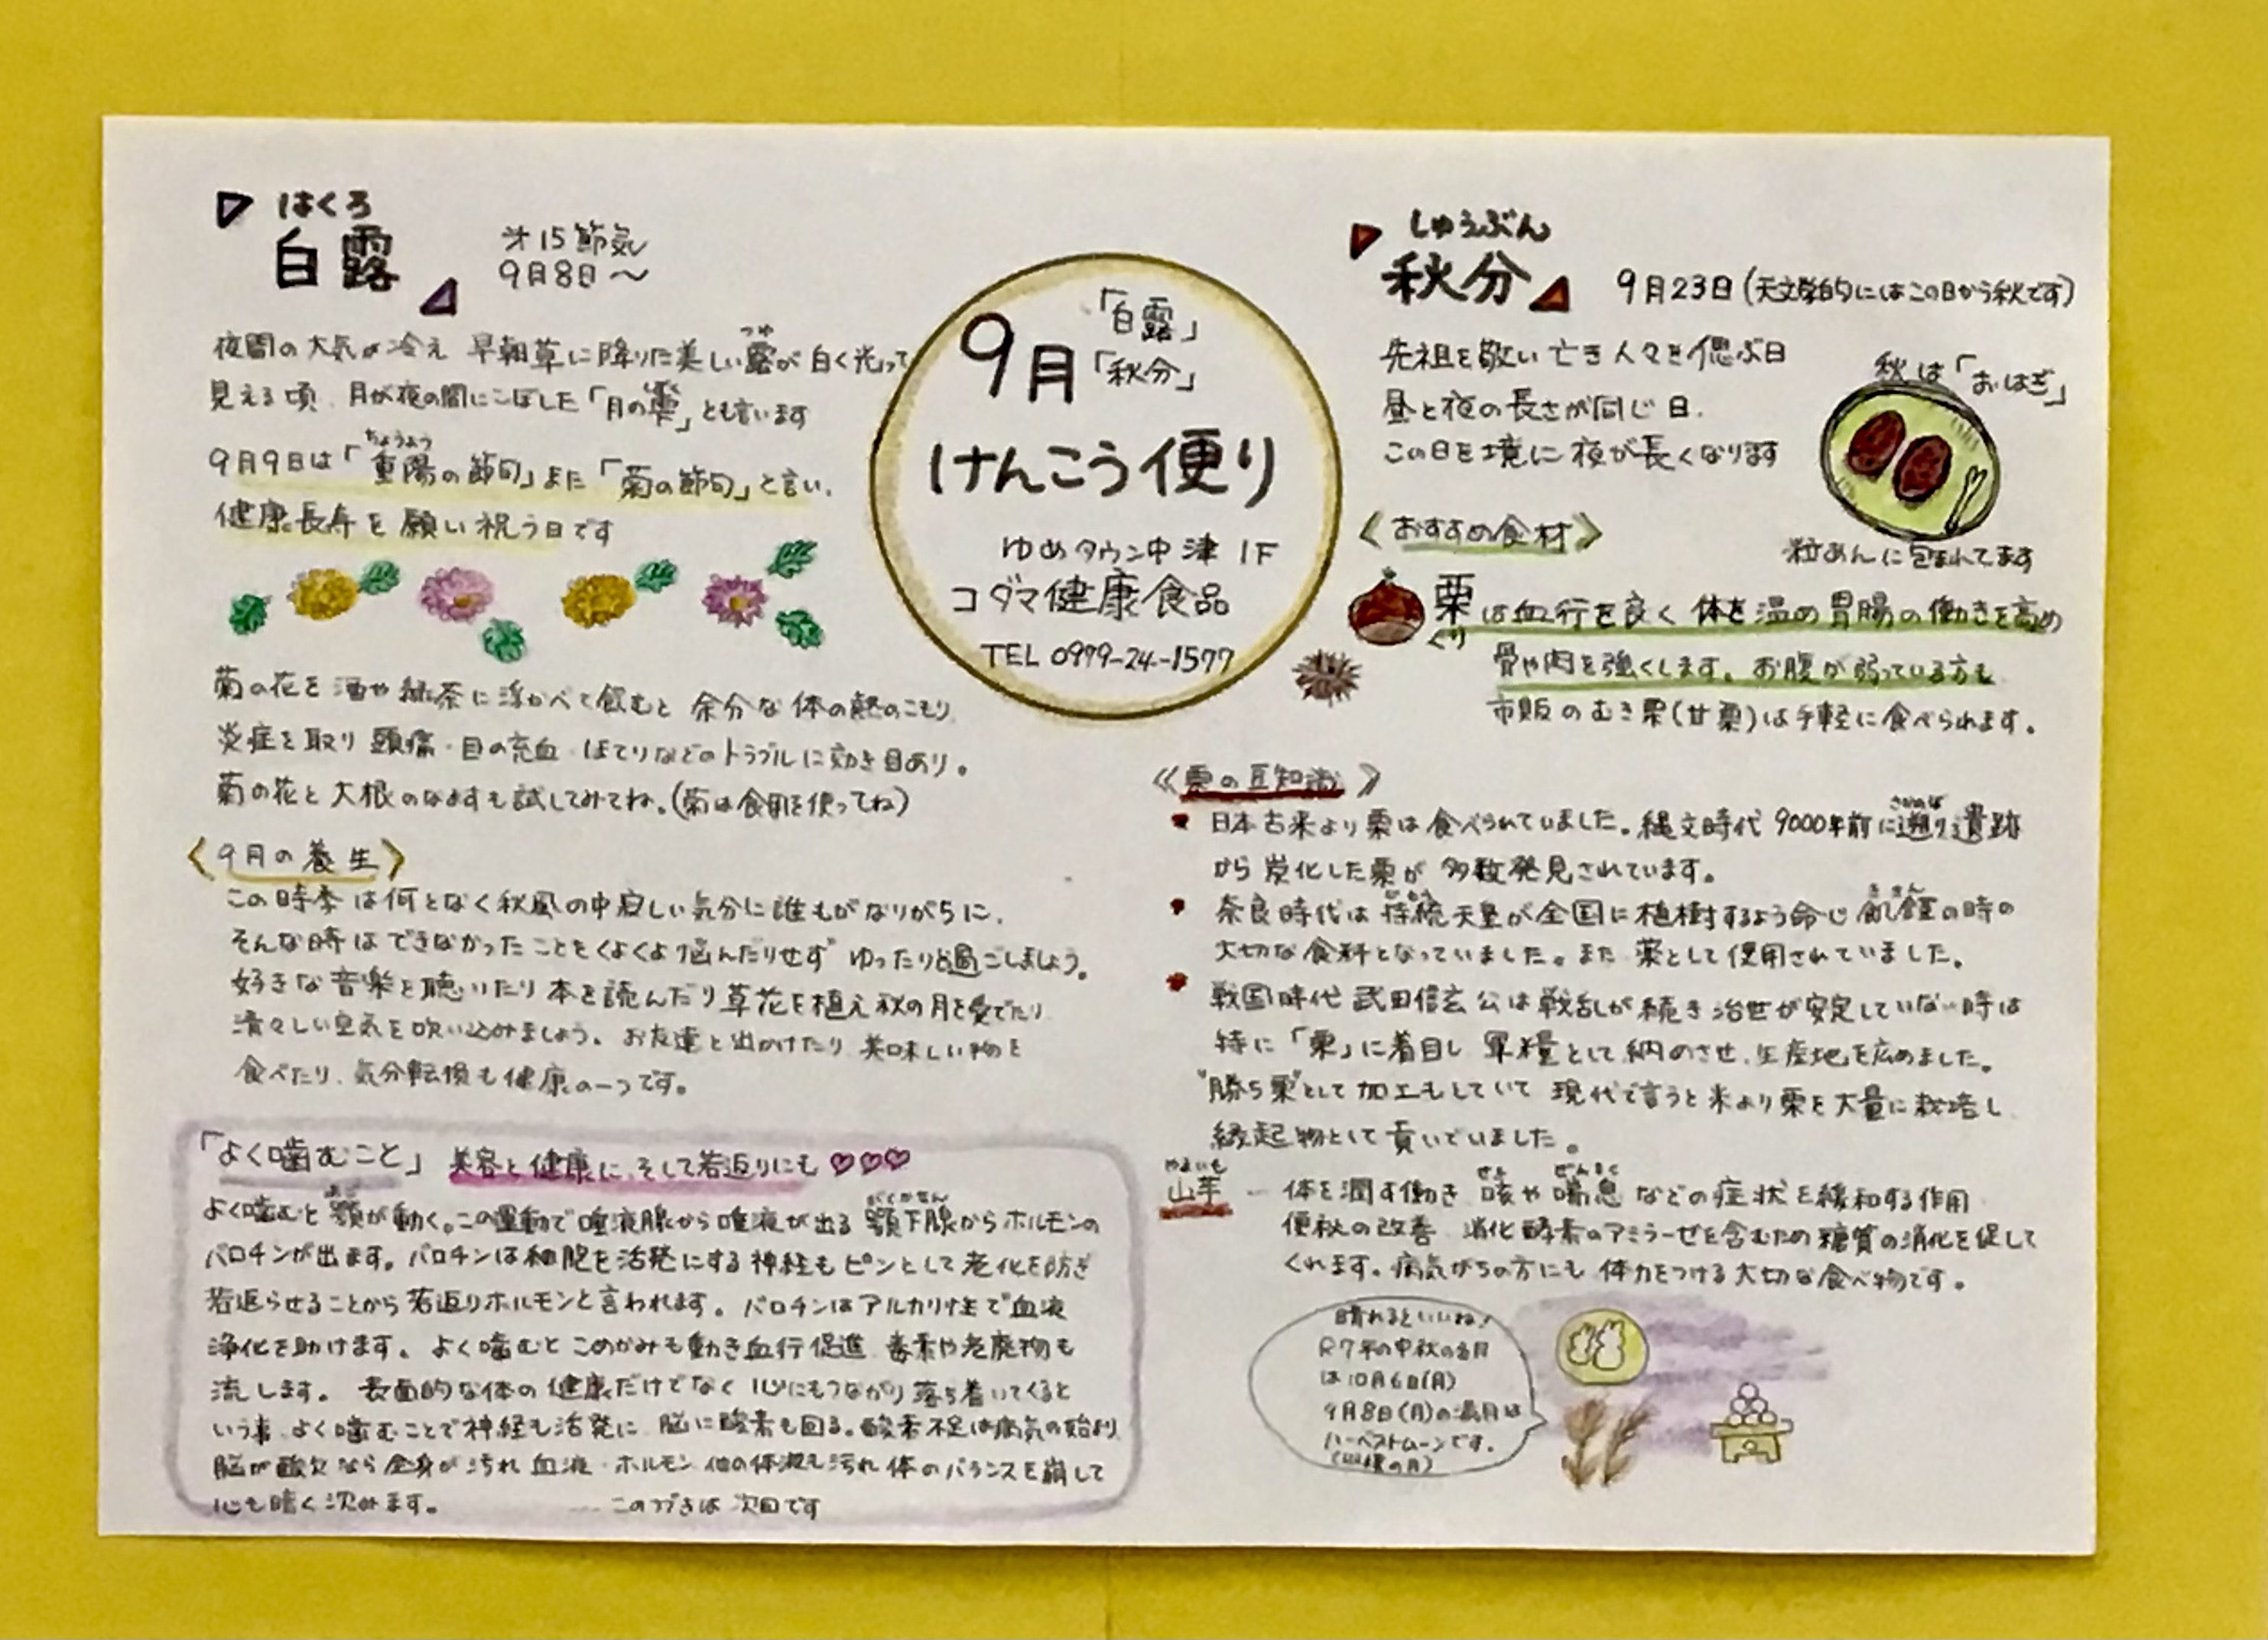 はくろ
白露
才15節気
9月8日〜
夜間の大気が冷え 早朝草に降りた美しい露が白く光って
つゆ
見える頃 月が夜の間にこぼした「月の雫」とも言います
しずく
ちょうよう
9月9日は「重陽の節句」また「菊の節句」と言い、
健康長寿を願い祝う日です
菊の花を酒や緑茶に浮かべて飲むと 余分な体の熱のこもり
炎症を取り 頭痛・目の充血・ほてりなどのトラブルに効き目あり。
菊の花と大根のなますも試してみてね。(菊は食用を使ってね)
〈9月の養生〉
この時季は何となく秋風の中寂しい気分に誰もがなりがちに、
そんな時はできなかったことをくよくよ悩んだりせず ゆったり過ごしましょう。
好きな音楽を聴いたり本を読んだり草花を植え秋の月を愛でたり
清々しい空気を吸い込みましょう。お友達と出かけたり 美味しい物を
食べたり、気分転換も健康の一つです。
「よく噛むこと」 美容と健康に、そして若返りにも ♡♡♡
あご
がくかせん
よく噛むと 顎が動く。この運動で唾液腺から唾液が出る 顎下腺からホルモンの
パロチンが出ます。パロチンは細胞を活発にする神経もピンとして老化を防ぎ
若返らせることから若返りホルモンと言われます。パロチンはアルカリ性で血液
浄化を助けます。よく噛むと こめかみも動き血行促進 毒素や老廃物も
流します。表面的な体の健康だけでなく 心にもつながり落ち着いてくると
いう事 よく噛むことで神経も活発に 脳に酸素も回る。酸素不足は病気の始まり
脳が酸欠なら全身が汚れ 血液・ホルモン 他の体液も汚れ 体のバランスを崩して
心も暗く沈みます。 ……このつづきは 次回です
9月
「白露」
「秋分」
けんこう便り
ゆめタウン中津 1F
コダマ健康食品
TEL 0979-24-1577
しゅうぶん
秋分
9月23日(天文学的にはこの日から秋です)
先祖を敬い 亡き人々を偲ぶ日
昼と夜の長さが同じ日.
この日を境に 夜が長くなります
秋は「おはぎ」
粒あんに包まれてます
〈おすすめ食材〉
栗は血行を良く 体を温め 胃腸の働きを高め
くり
骨や肉を強くします。お腹が弱っている方も
市販のむき栗(甘栗)は手軽に食べられます。
《栗の豆知識》
さかのぼ
日本古来より栗は食べられていました。縄文時代 9000年前に遡り遺跡
から炭化した栗が 多数発見されています。
じとう
ききん
奈良時代は 持統天皇が全国に植樹するよう命じ 飢饉の時の
大切な食料となっていました。また 薬として使用されていました。
戦国時代 武田信玄公は戦乱が続き治世が安定していない時は
特に「栗」に着目し 軍糧として納めさせ、生産地を広めました。
"勝ち栗"として加工もしていて 現代で言うと米より栗を大量に栽培し
縁起物として貢いでいました。
やまいも
せき
ぜんそく
山芋 … 体を潤す働き 咳や喘息などの症状を緩和する作用
便秘の改善 消化酵素のアミラーゼを含むため糖質の消化を促して
くれます。病気がちの方にも 体力をつける大切な食べ物です。
晴れるといいね!
R7年の中秋の名月
は10月6日(月)
9月8日(月)の満月は
ハーベストムーンです。
(収穫の月)